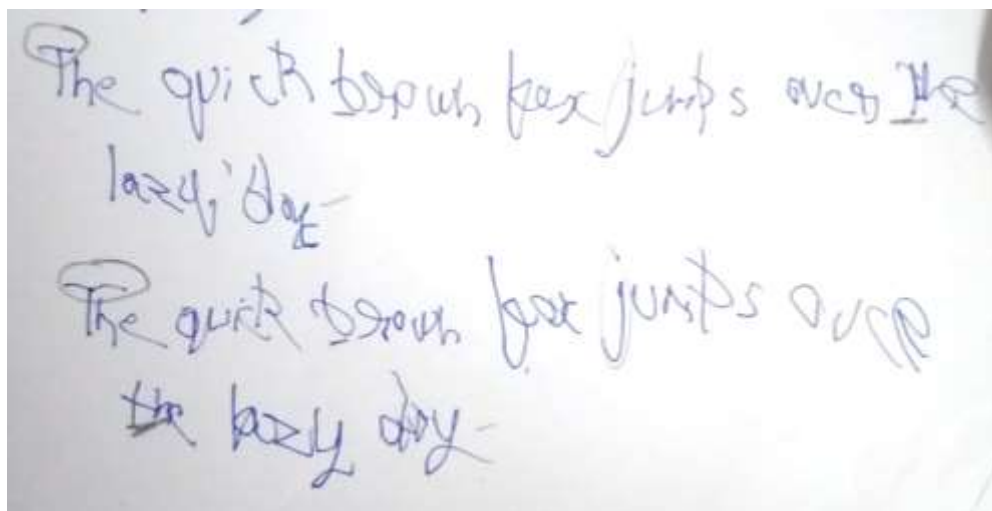 The quick brown fox jumps over the
lazy dog
The quick brown fox jumps over
the lazy dog